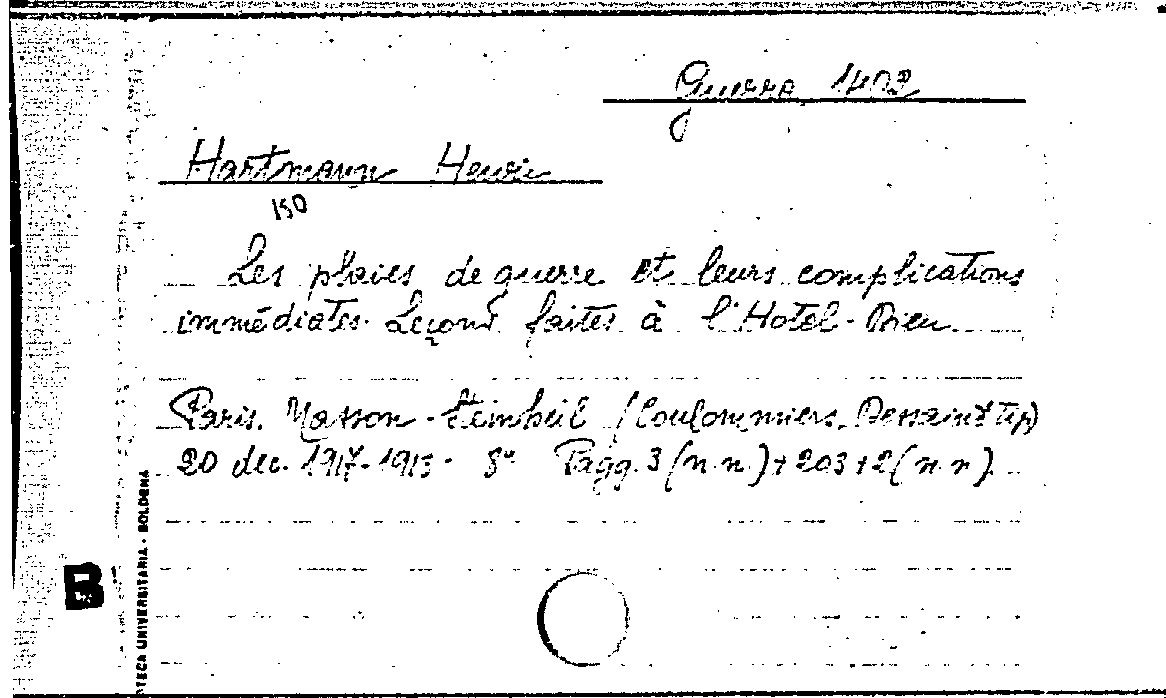 Guerra 1402
Hartmann Henri
150
Les plaies de guerre et leurs complications
immédiates. Leçons faites à l'Hotel-Dieu
Paris. Masson - Steinheil (Coulommiers, Dessaint tip)
20 dec. 1917-1918 - 8° Pagg. 3 (n.n.) + 203 + 2 (n.n).
TECA UNIVERSITARIA - BOLOGNA
B